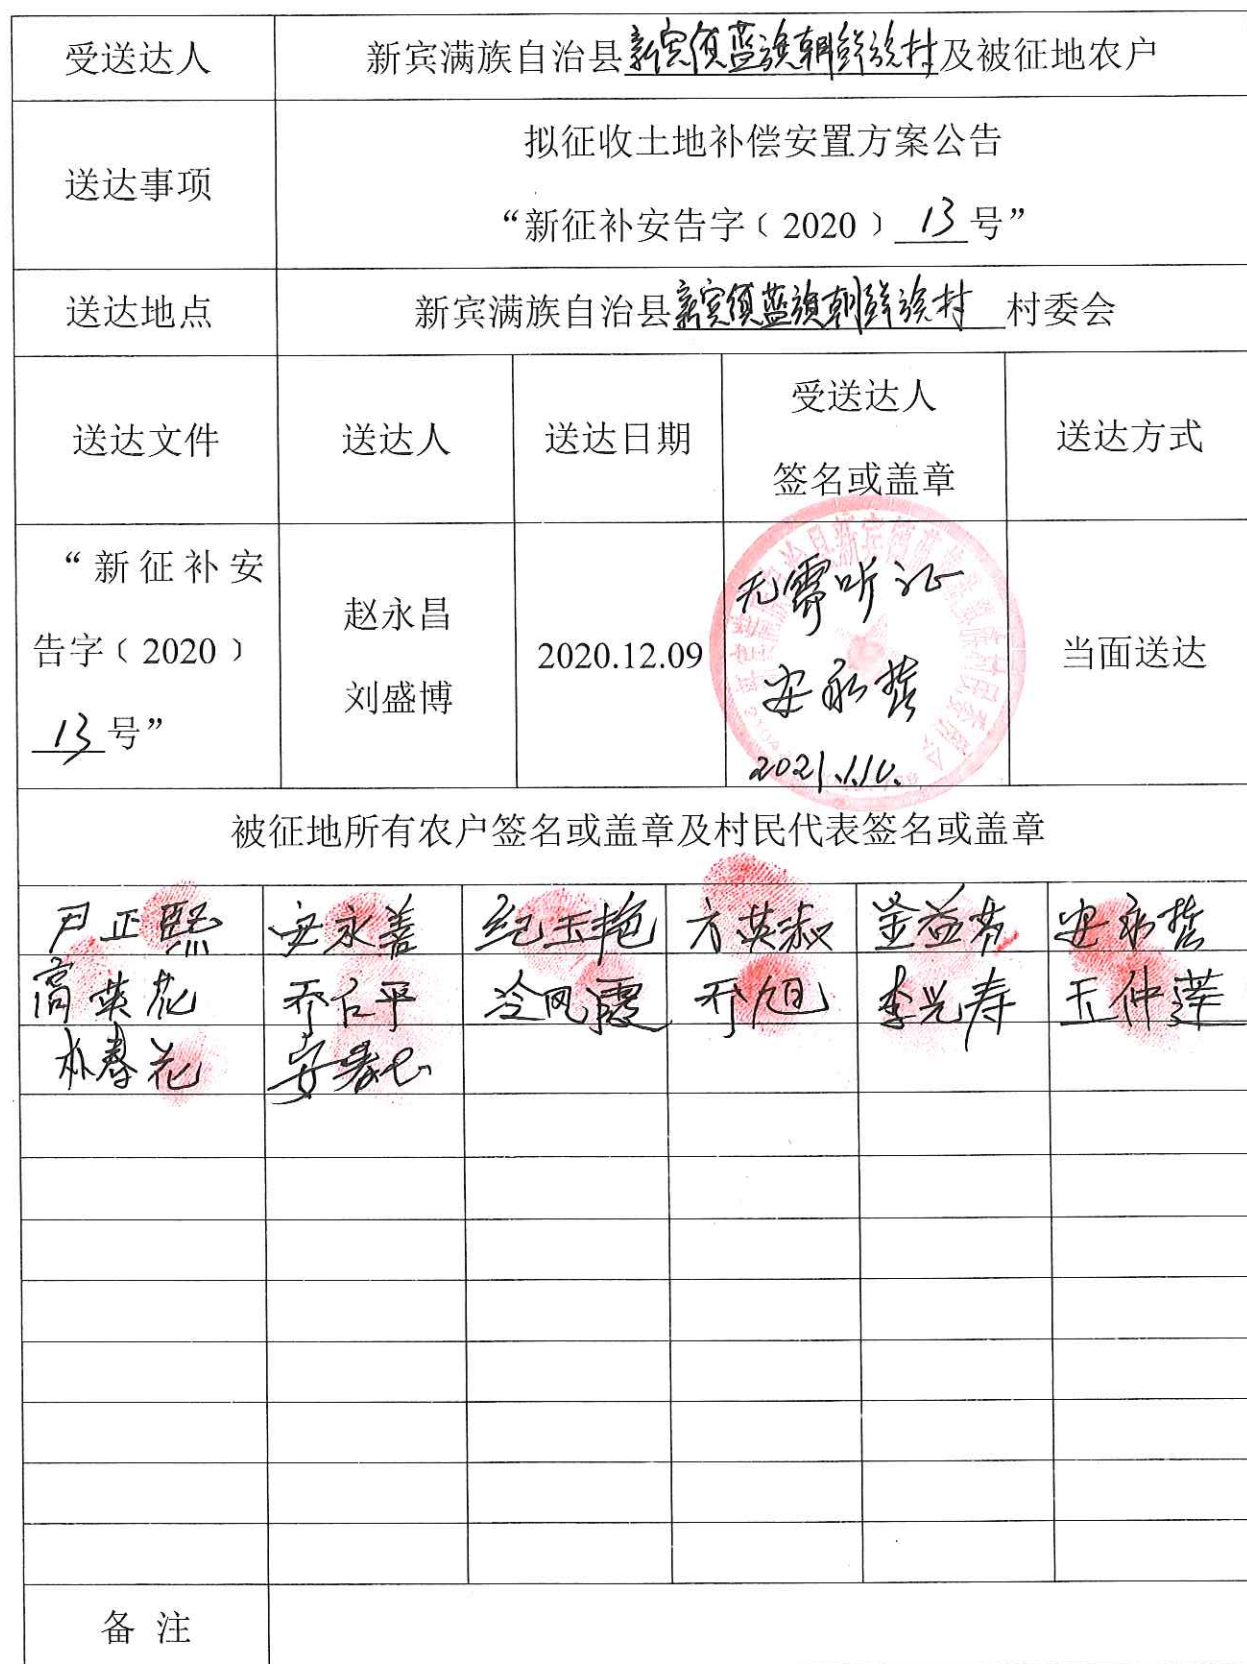 受送达人
新宾满族自治县新宾镇蓝旗朝鲜族村及被征地农户
送达事项
拟征收土地补偿安置方案公告
“新征补安告字﹝2020﹞13号”
送达地点
新宾满族自治县新宾镇蓝旗朝鲜族村 村委会
送达文件
送达人
送达日期
受送达人
签名或盖章
送达方式
“新征补安
告字﹝2020﹞
13号”
赵永昌
刘盛博
2020.12.09
无需听证
安永哲
2021.1.10.
当面送达
被征地所有农户签名或盖章及村民代表签名或盖章
尹正熙 安永善 纪玉艳 方英淑 金益 安永哲
高英花 乔仁平 冷凤霞 乔旭 李光寿 王仲莲
朴春花 安
备 注